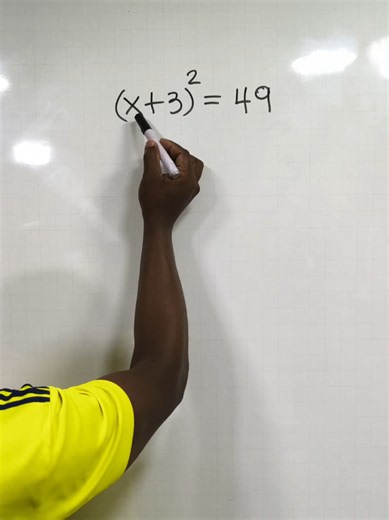 (x+3)² = 49